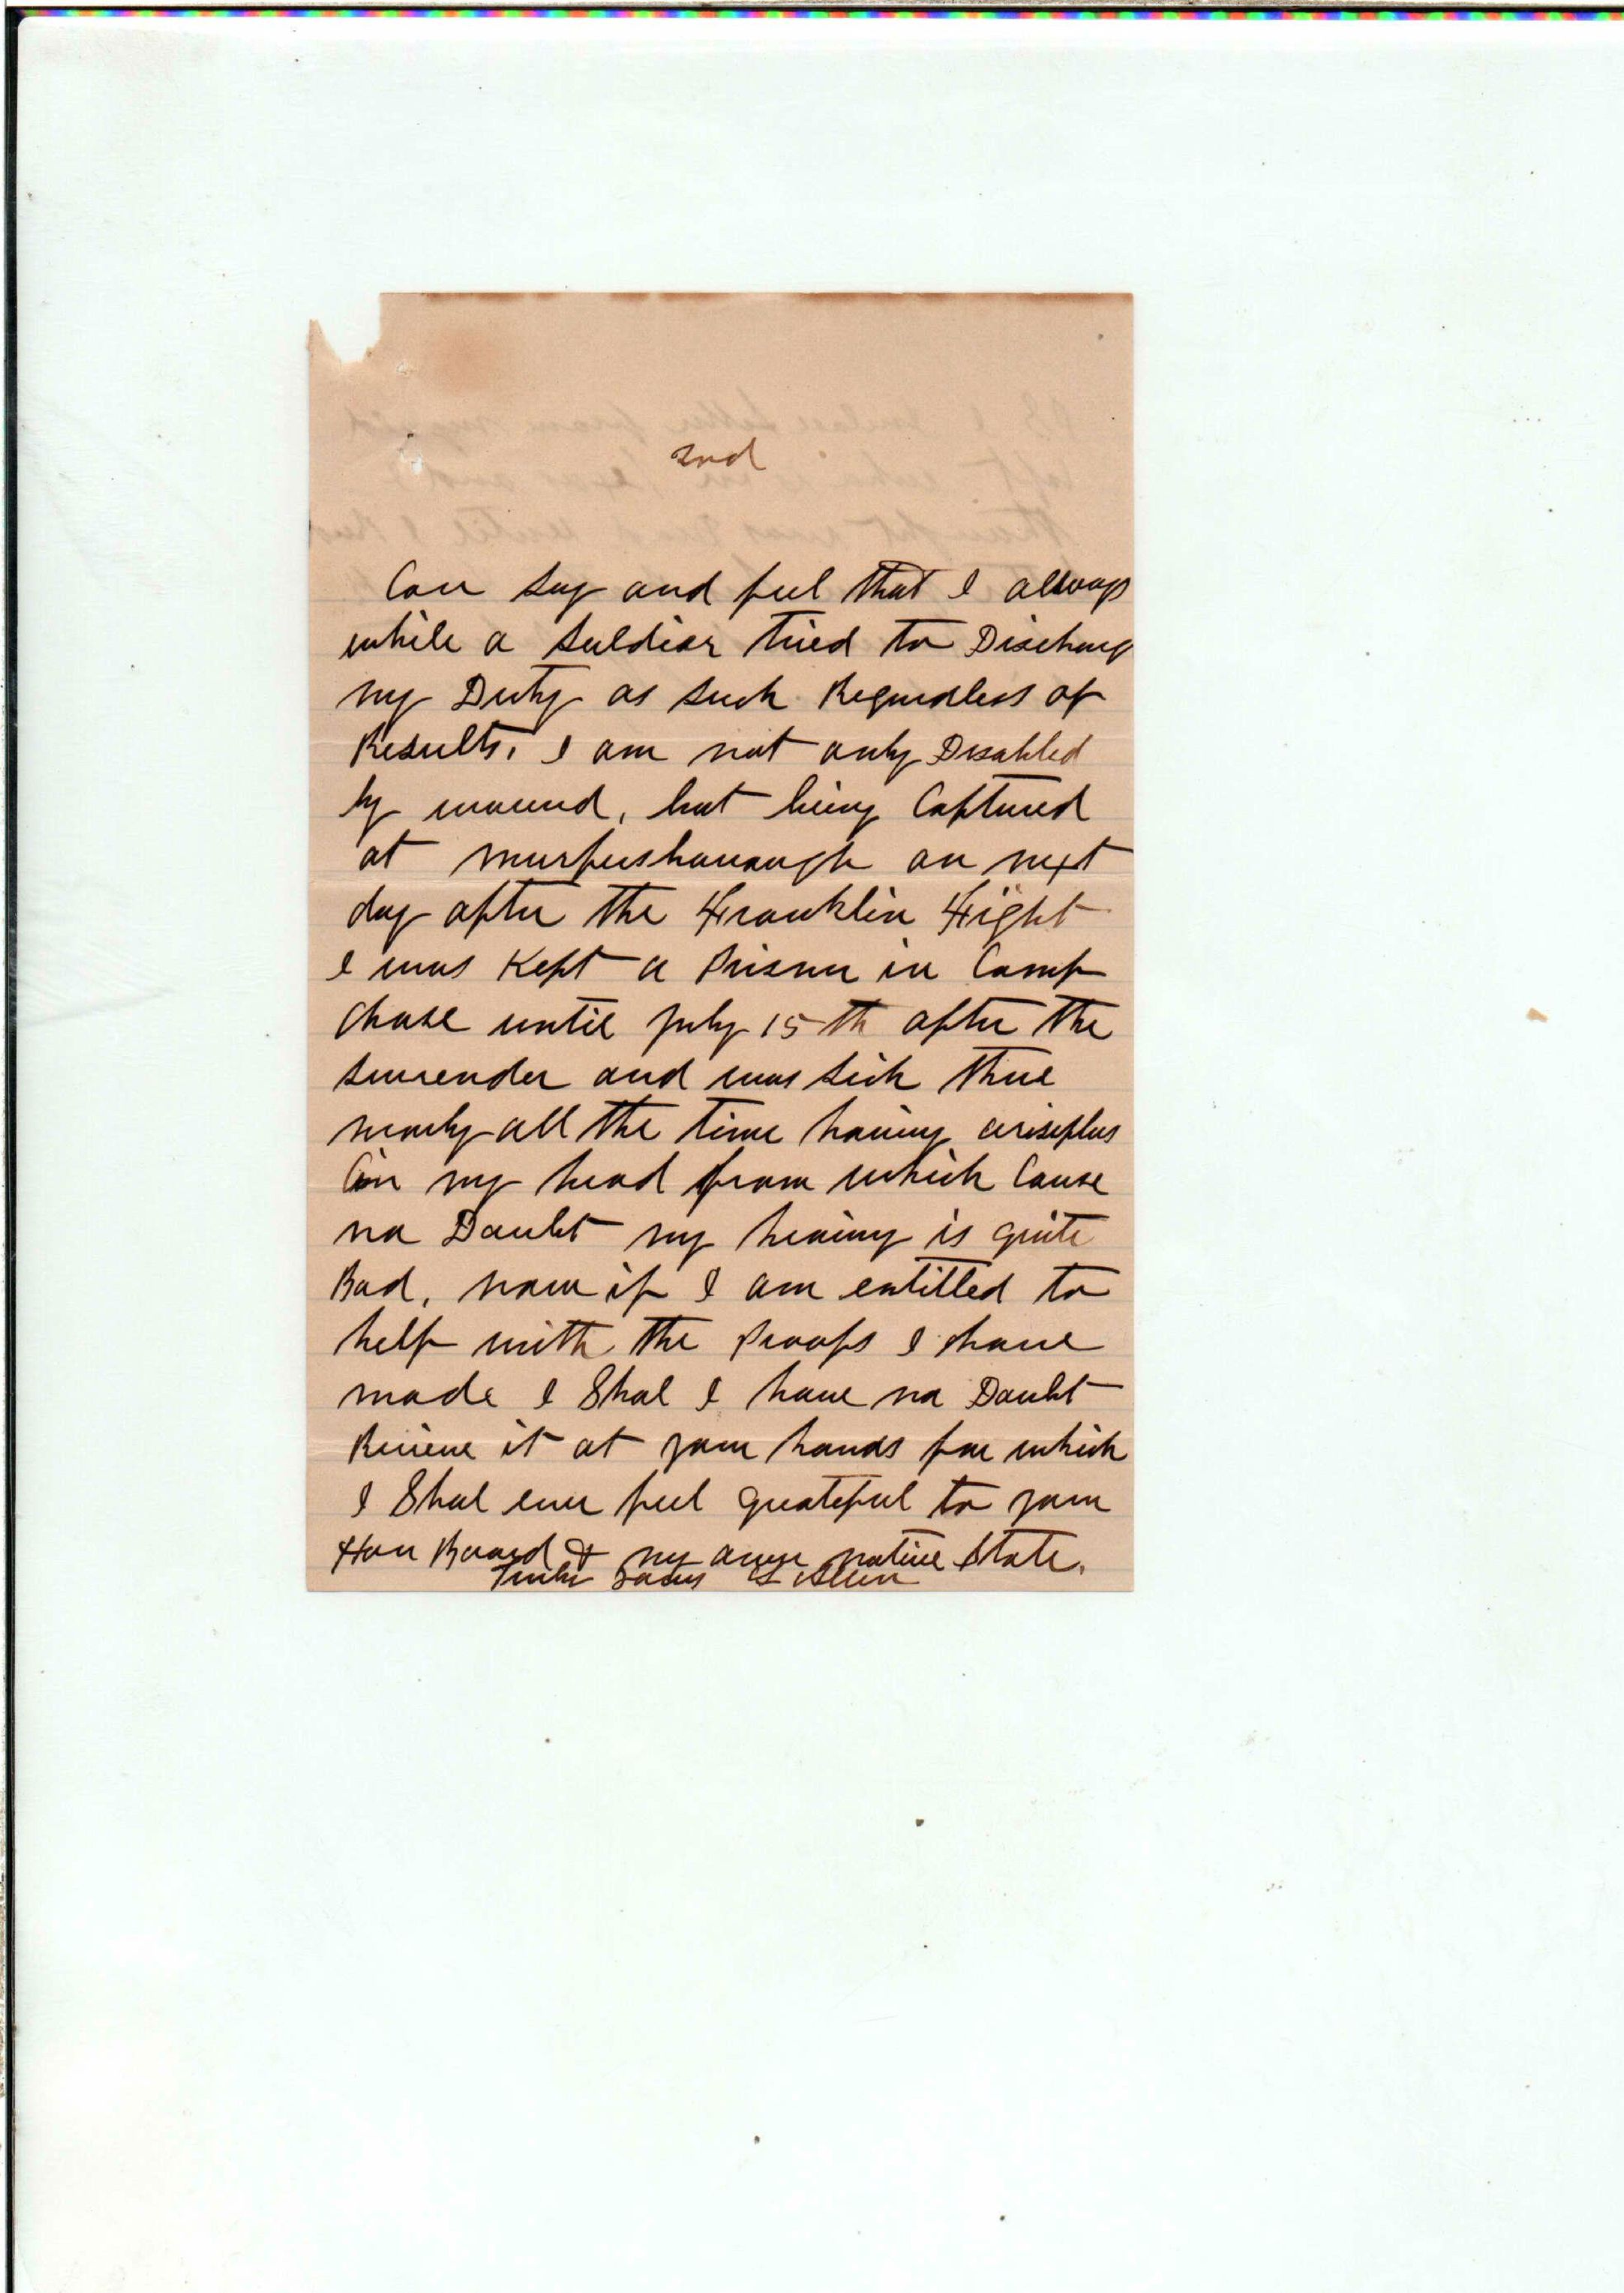 2nd
Can say and feel that I allways
while a Suldier tried to Discharg
my Duty as such Regardless of
Results. I am not only Disabled
by wound, but being Captured
at murfeesbourough on next
day after the Franklin Fight
I was Kept a Prisner in Camp
chase until July 15th after the
surrender and was sick thire
nearly all the time having arisiplus
in my head from which Cause
no Doubt my hearing is quite
Bad, now if I am entitled to
help with the Proofs I have
made I Shal I have no Doubt
Recieve it at your hands for which
I Shal ever feel grateful to your
Hon Board & my own native State.
Truly yours